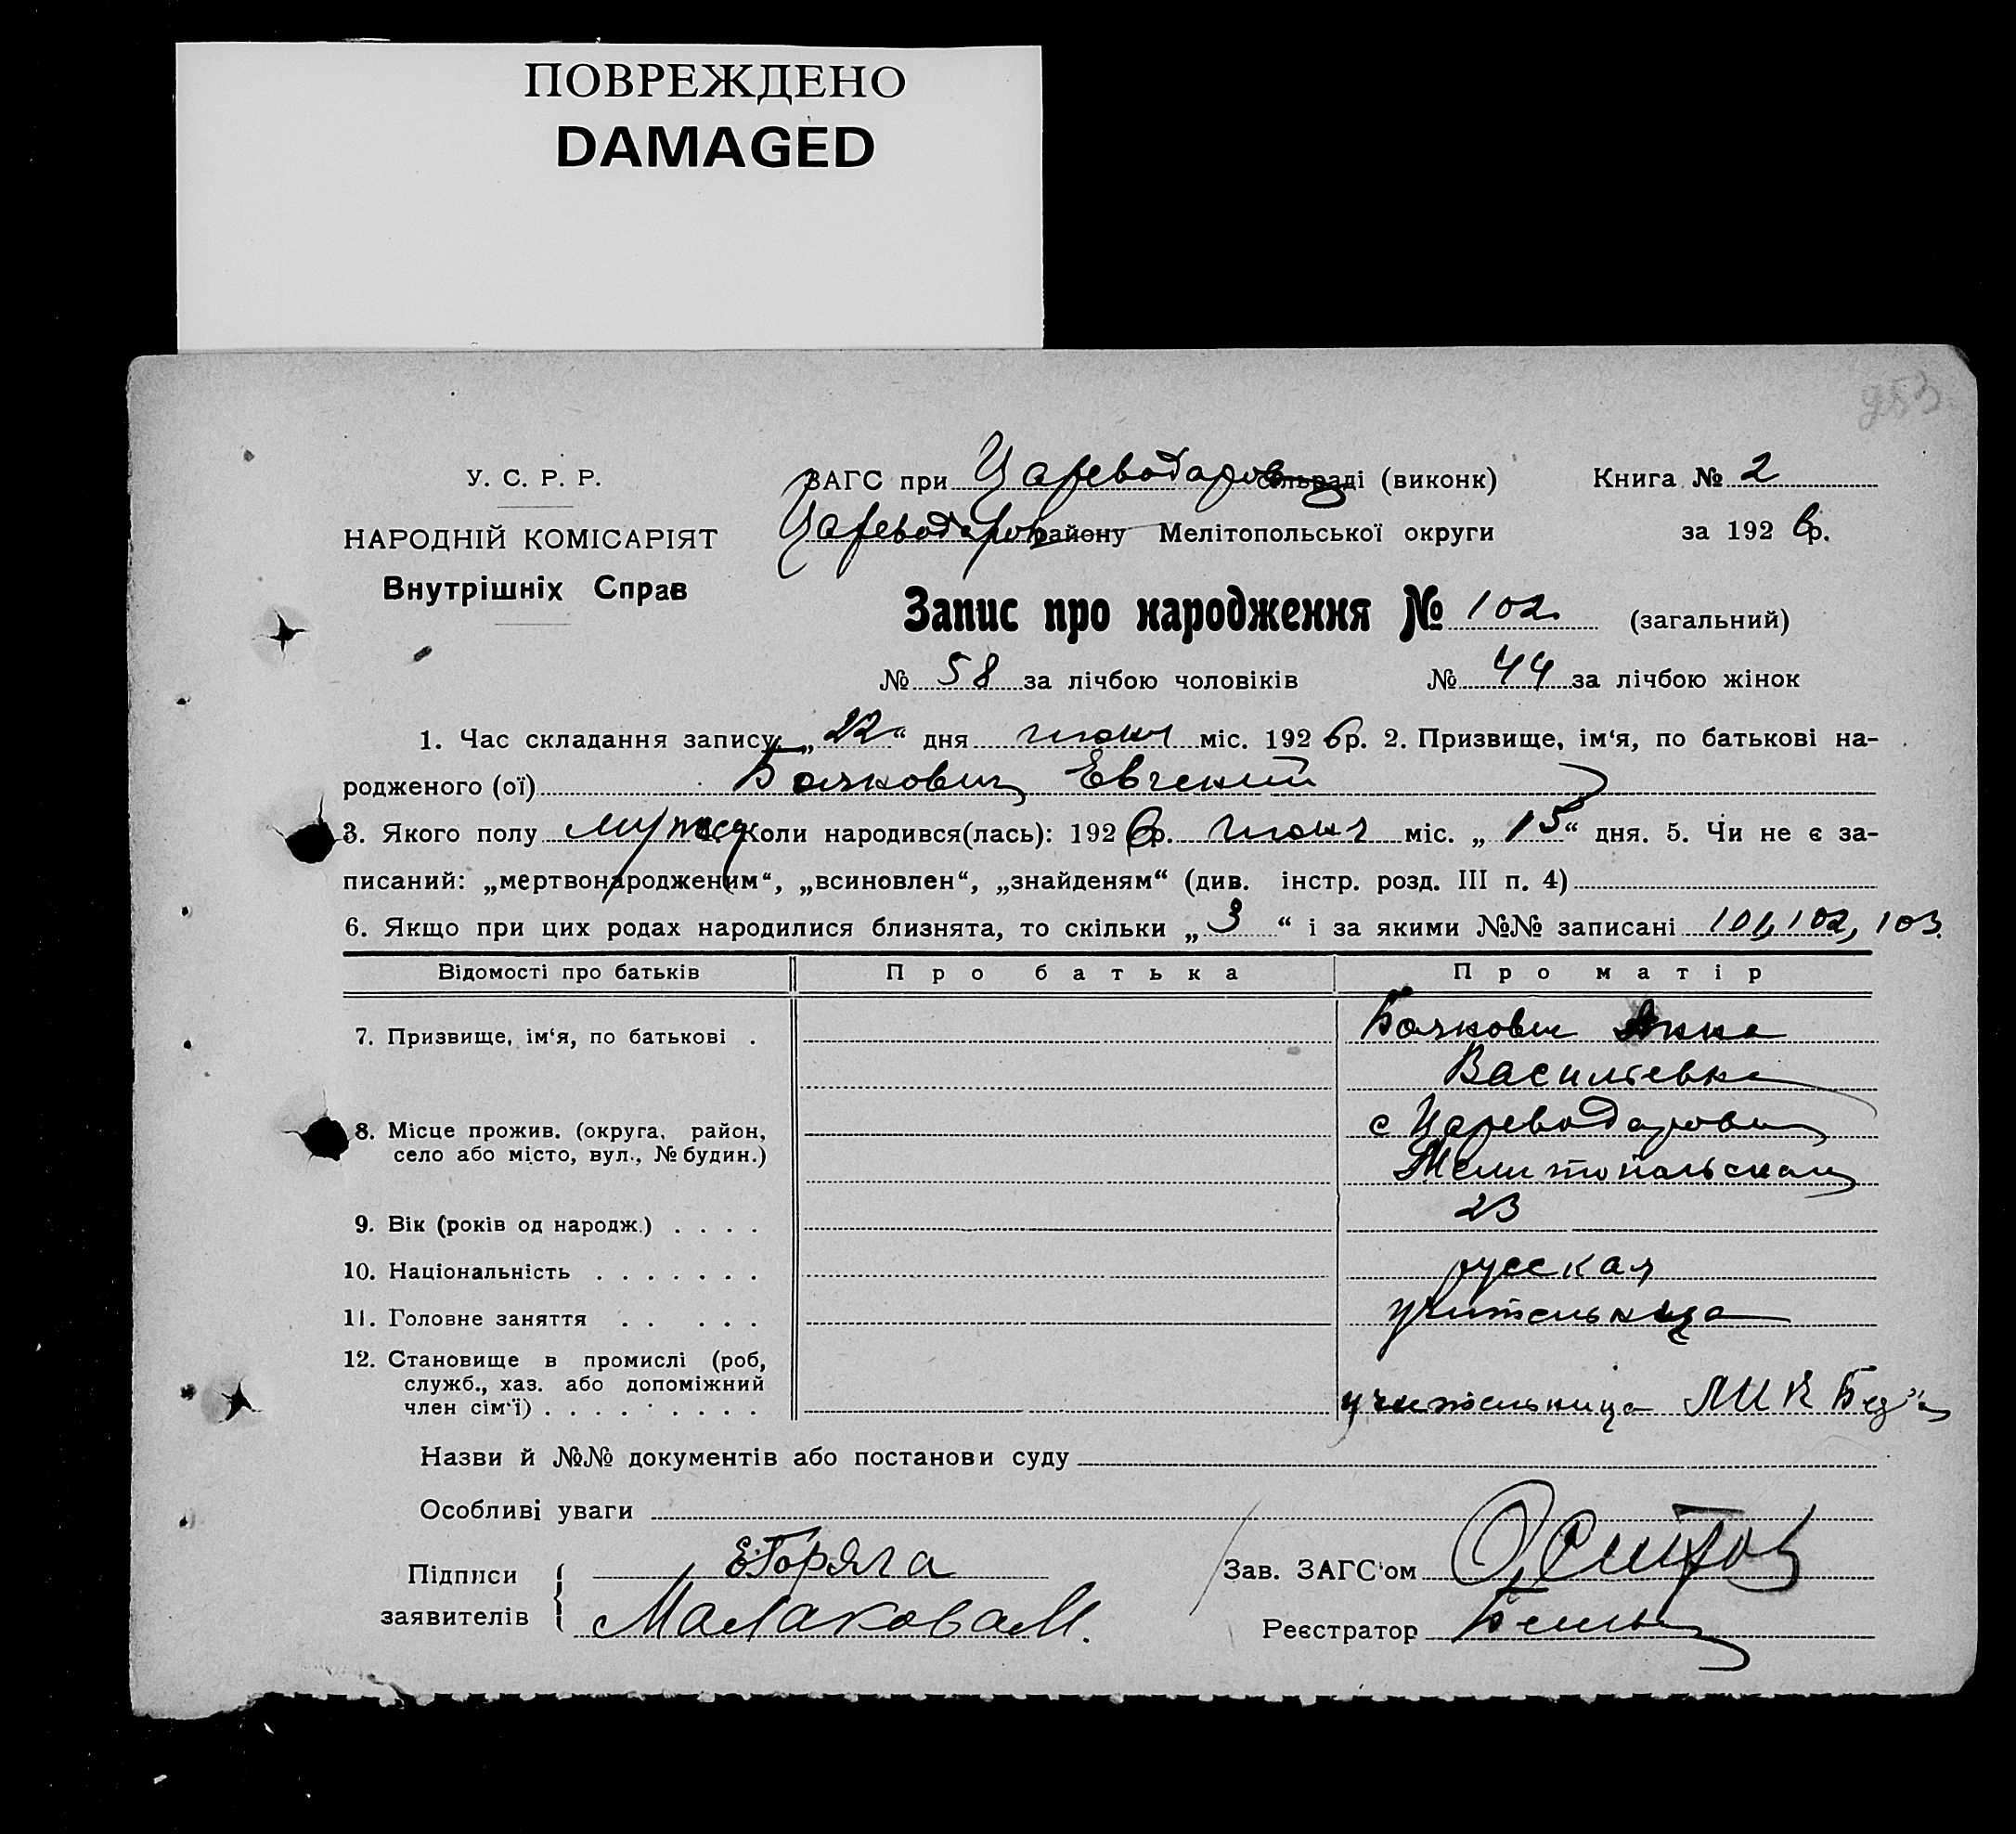 ПОВРЕЖДЕНО
DAMAGED
253
У. С. Р. Р.
НАРОДНІЙ КОМІСАРІЯТ
Внутрішніх Справ
ЗАГС при Цареводаров сільраді (виконк)
Книга № 2
Цареводаров району Мелітопольської округи
за 1926 р.
Запис про народження № 102 (загальний)
№ 58 за лічбою чоловіків № 44 за лічбою жінок
1. Час складання запису: „22“ дня июня міс. 1926 р. 2. Призвище, ім‘я, по батькові на-
родженого (ої) Бачкович Евгений
3. Якого полу муж 4. Коли народився(лась): 1926 р. июня міс. „15“ дня. 5. Чи не є за-
писаний: „мертвонародженим“, „всиновлен“, „знайденям“ (див. інстр. розд. III п. 4)
6. Якщо при цих родах народилися близнята, то скільки „3“ і за якими №№ записані 101, 102, 103.
Відомості про батьків Про батька Про матір
7. Призвище, ім‘я, по батькові . Анна
Васильевна
8. Місце прожив. (округа, район, с Цареводаровк
село або місто, вул., № будин.) Мелитопольском
9. Вік (років од народж.) . . . . 23
10. Національність . . . . . . . русская
11. Головне заняття . . . . . учительница
12. Становище в промислі (роб,
служб., хаз. або допоміжний
член сім‘ї) . . . . . . . . . учительница
Назви й №№ документів або постанови суду
Особливі уваги
Підписи
заявителів
Е Горяга
Малакова М.
Зав. ЗАГС‘ом
Реєстратор